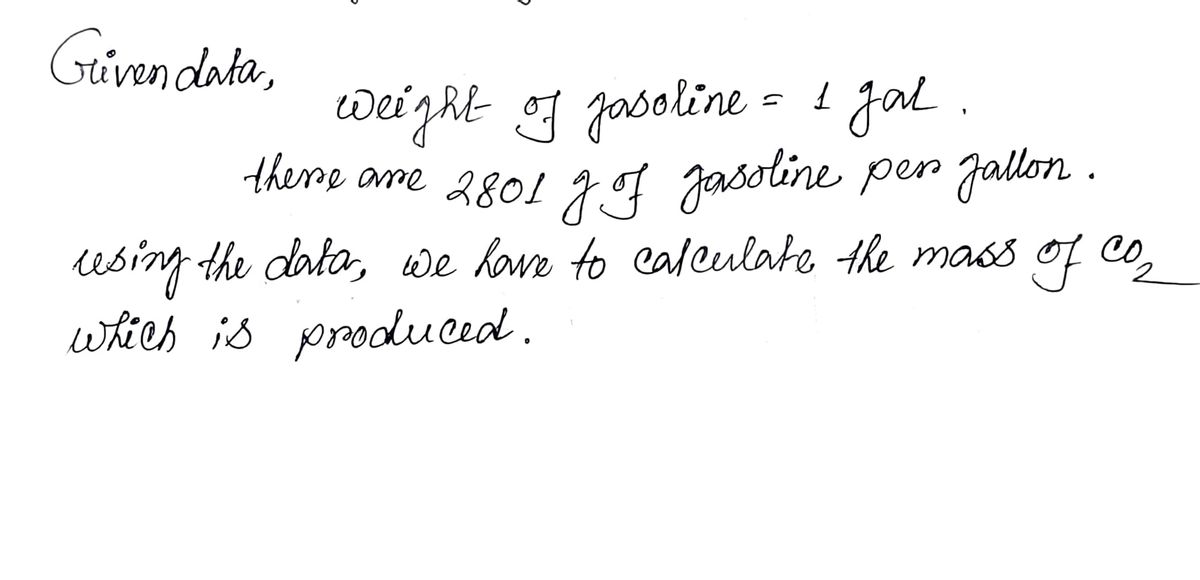 Given data,
weight of gasoline = 1 gal.
there are 2801 g of gasoline per gallon.
using the data, we have to calculate the mass of CO₂
which is produced.